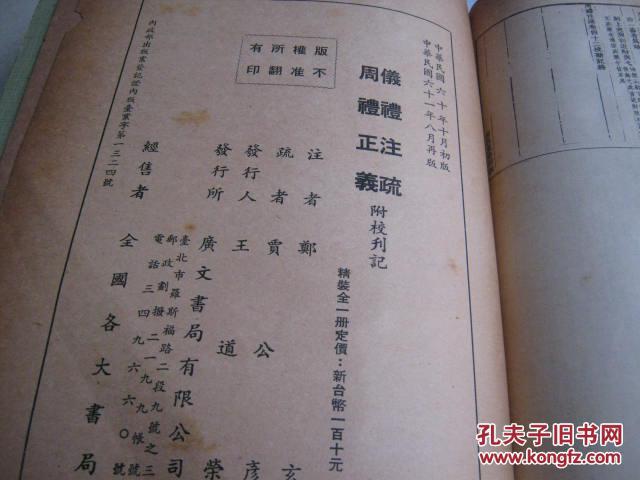 中華民國六十年十月初版
中華民國六十一年八月再版
儀禮注疏
周禮正義
附校刊記
精裝全一册定價：新台幣一百十元
版權所有
不准翻印
注者 鄭 玄
疏者 賈公彥
發行人 王道榮
發行所 廣文書局有限公司
臺北市羅斯福路二段九號之三
郵政劃撥二一九九帳號
電話三四九六六〇號
經售者 全國各大書局
內政部出版業登記證內版臺業字第一三二四號
孔夫子旧书网
www.kongfz.com